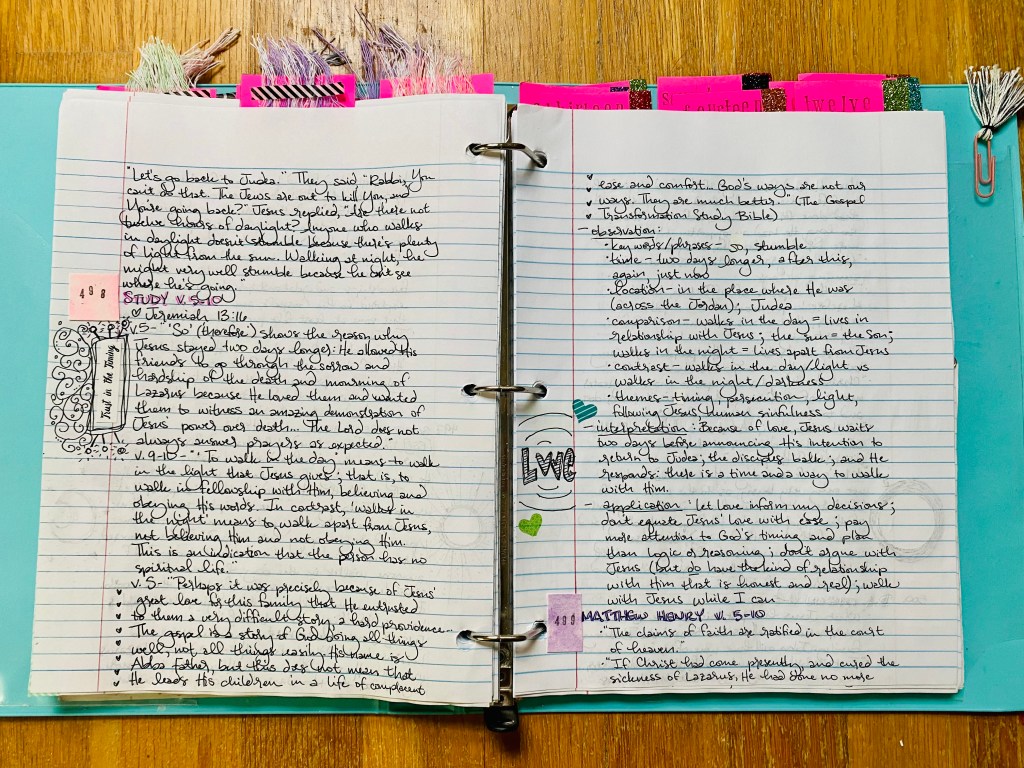 "Let's go back to Judea." They said "Rabbi, You
can't do that. The Jews are out to kill You, and
You're going back?" Jesus replied, "Are there not
twelve hours of daylight? Anyone who walks
in daylight doesn't stumble because there's plenty
of light from the sun. Walking at night, he
might very well stumble because he can't see
where he's going."
498
STUDY V. 5-10
Jeremiah 13:16
Trust in the Timing
v.5- 'So' (therefore') shows the reason why
Jesus stayed two days longer: He allowed His
friends to go through the sorrow and
hardship of the death and mourning of
Lazarus because He loved them and wanted
them to witness an amazing demonstration of
Jesus' power over death... The Lord does not
always answer prayers as expected."
v. 9-10- "'To walk in the day' means to walk
in the light that Jesus gives; that is, to
walk in fellowship with Him, believing and
obeying His words. In contrast, 'walks in
the night' means to walk apart from Jesus,
not believing Him and not obeying Him.
This is an indication that the person has no
spiritual life."
v. 5- "Perhaps it was precisely because of Jesus'
great love for this family that He entrusted
to them a very difficult story, a hard providence...
The gospel is a story of God doing all things
well, not all things easily. His name is
Abba Father, but this does not mean that
He leads His children in a life of complacent
twelve
ease and comfort... God's ways are not our
ways. They are much better." (The Gospel
Transformation Study Bible)
- observation:
• key words/phrases - so, stumble
• time - two days longer, after this,
again, just now
• location - in the place where He was
(across the Jordan); Judea
• comparison - walks in the day = lives in
relationship with Jesus; the sun = the Son;
walks in the night = lives apart from Jesus
• contrast - walks in the day/light vs
walks in the night/darkness
• themes - timing, persecution, light,
following Jesus, human sinfulness
LWC
- interpretation: Because of love, Jesus waits
two days before announcing His intention to
return to Judea; the disciples balk; and He
responds: there is a time and a way to walk
with Him.
- application: let love inform my decisions;
don't equate Jesus' love with ease; pay
more attention to God's timing and plan
than logic or reasoning; don't argue with
Jesus (but do have the kind of relationship
with Him that is honest and real); walk
with Jesus while I can
499
MATTHEW HENRY V. 5-10
• "The claims of faith are ratified in the court
of heaven."
• "If Christ had come presently, and cured the
sickness of Lazarus, He had done no more